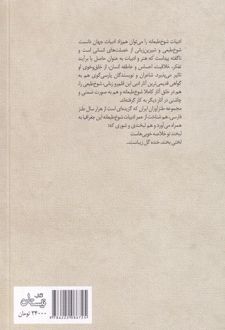 ادبیات شوخ‌طبعانه را می‌توان همزاد ادبیات جهان دانست
شوخ‌طبعی و شیرین‌زبانی از خصلت‌های انسانی است و
ناگفته پیداست که هنر و ادبیات به عنوان حاصل یا برآیند
تفکر، خلاقیت، احساس و عاطفه انسان، از خلق‌وخوی او
تاثیر می‌پذیرد. شاعران و نویسندگان پارسی‌گوی هم به
گواهی قدیمی‌ترین آثار ادبی این قلمرو زبانی، شوخ‌طبعی را
هم در خلق آثار کاملا شوخ‌طبعانه و هم به صورت ضمنی و
چاشنی در آثار دیگر به کار گرفته‌اند.
مجموعه طنزآوران ایران که گزیده‌ای است از هزار سال طنز
فارسی، هم شناخت از عمر ادبیات شوخ‌طبعانه این جغرافیا به
همراه می‌آورد و هم لبخندی و شوری که:
لبخند تو خلاصه خوبی‌هاست
لختی بخند، خنده گل زیباست.
نیستان
۲۴۰۰۰ تومان